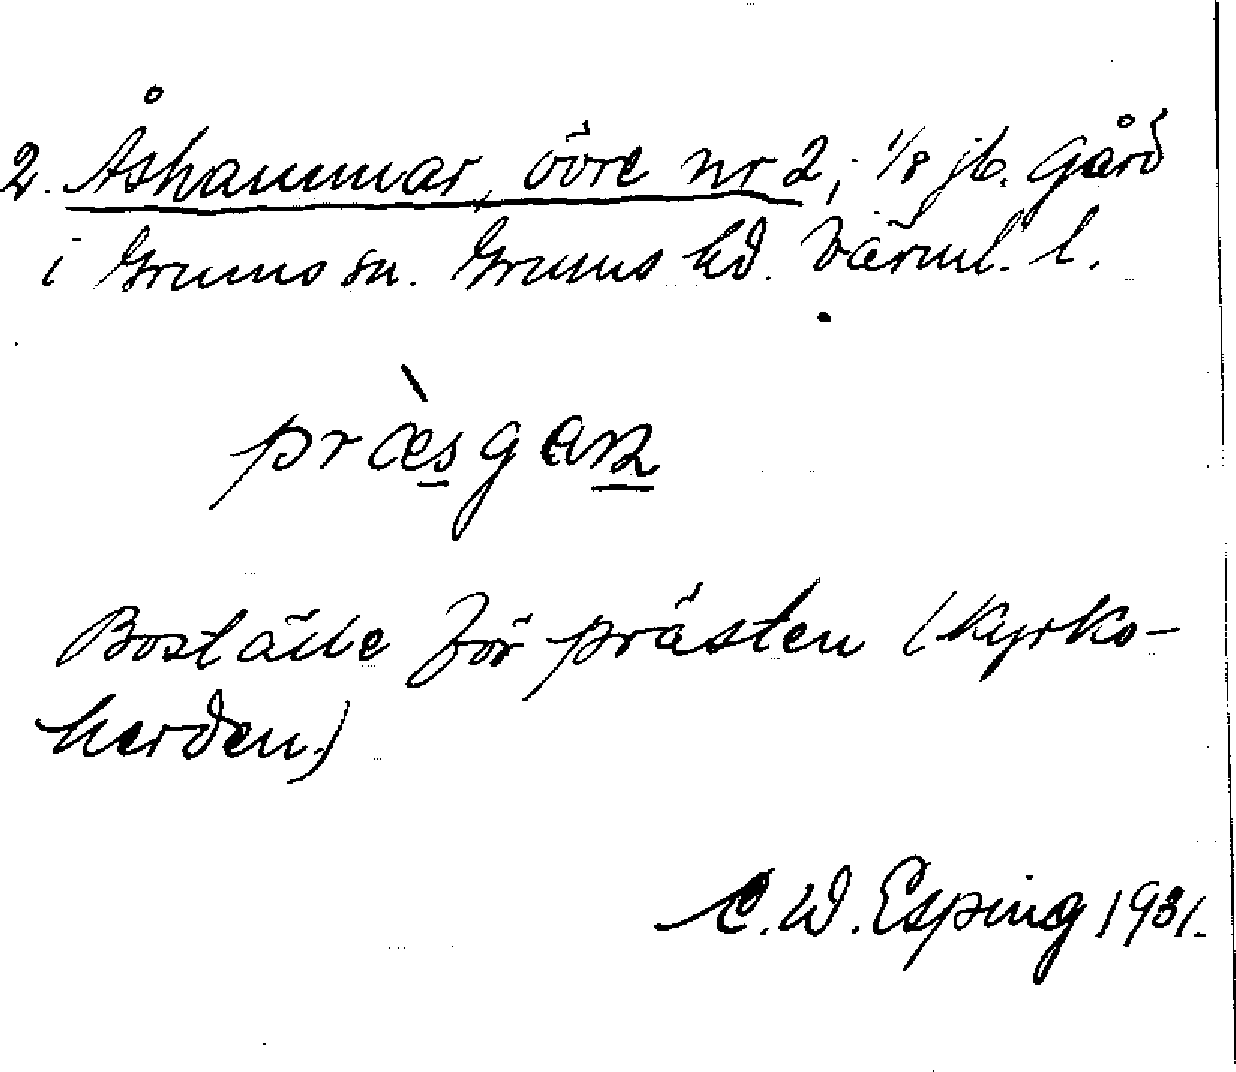 2. Åshammar, övre nr 2; 1/8 jb. gård
i Grums sn. Grums hd. Värml. l.
præ̀sgan
Boställe för prästen (kyrko-
herden)
C. W. Esping 1931.